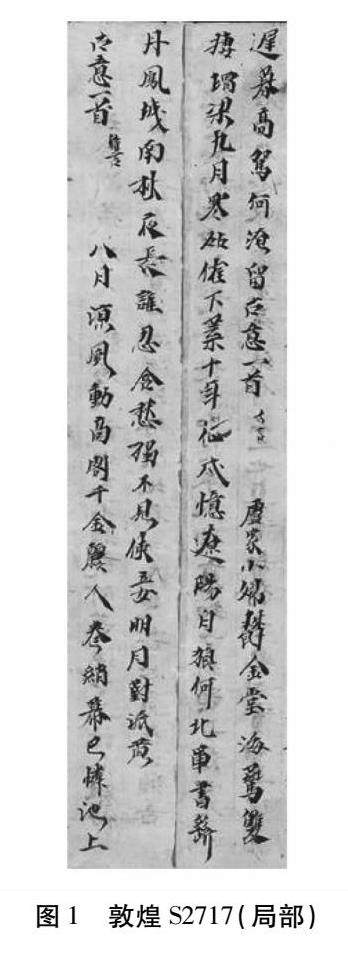 遲暮高駕何淹留古意一首 七言 盧家小婦鬱金堂海鷰雙
棲瑁梁九月寒砧催下葉十年征戍憶遼陽白狼何北軍書斷
丹鳳城南秋夜長誰忍含愁獨不見使妾明月對流黃
古意一首 雜言 八月涼風動高閣千金麗人卷綃幕已憐池上
图1 敦煌S2717(局部)